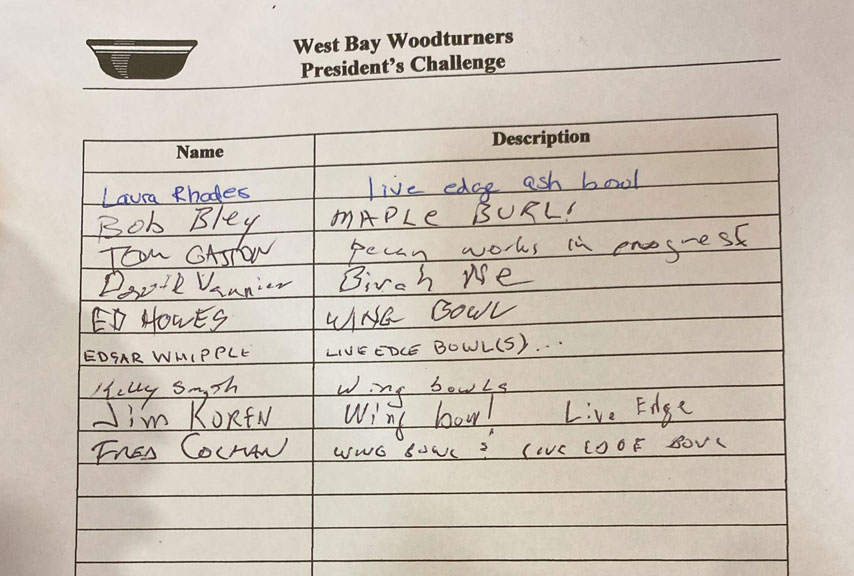 West Bay Woodturners
President's Challenge
Name Description
Laura Rhodes live edge ash bowl
Bob Bley MAPLE BURL!
TOM GASTON Pecan works in progress
David Vannier Birch
ED HOWES WING BOWL
EDGAR WHIPPLE LIVE EDGE BOWL(S)...
Kelly Smith Wing bowls
Jim KOREN Wing bowl Live Edge
FRED COLMAN WING BOWL LIVE EDGE BOWL